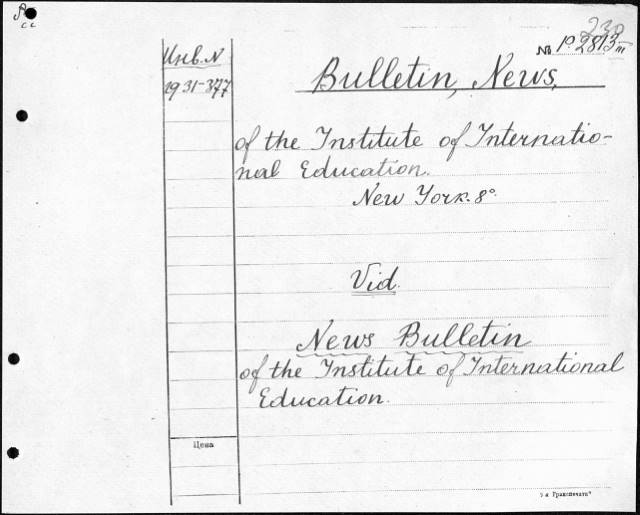 230
№ P. 2813 III
Инв. N
1931-377
Bulletin, News,
of the Institute of Internatio-
nal Education.
New York. 8°.
Vid.
News Bulletin
of the Institute of International
Education.
Цена